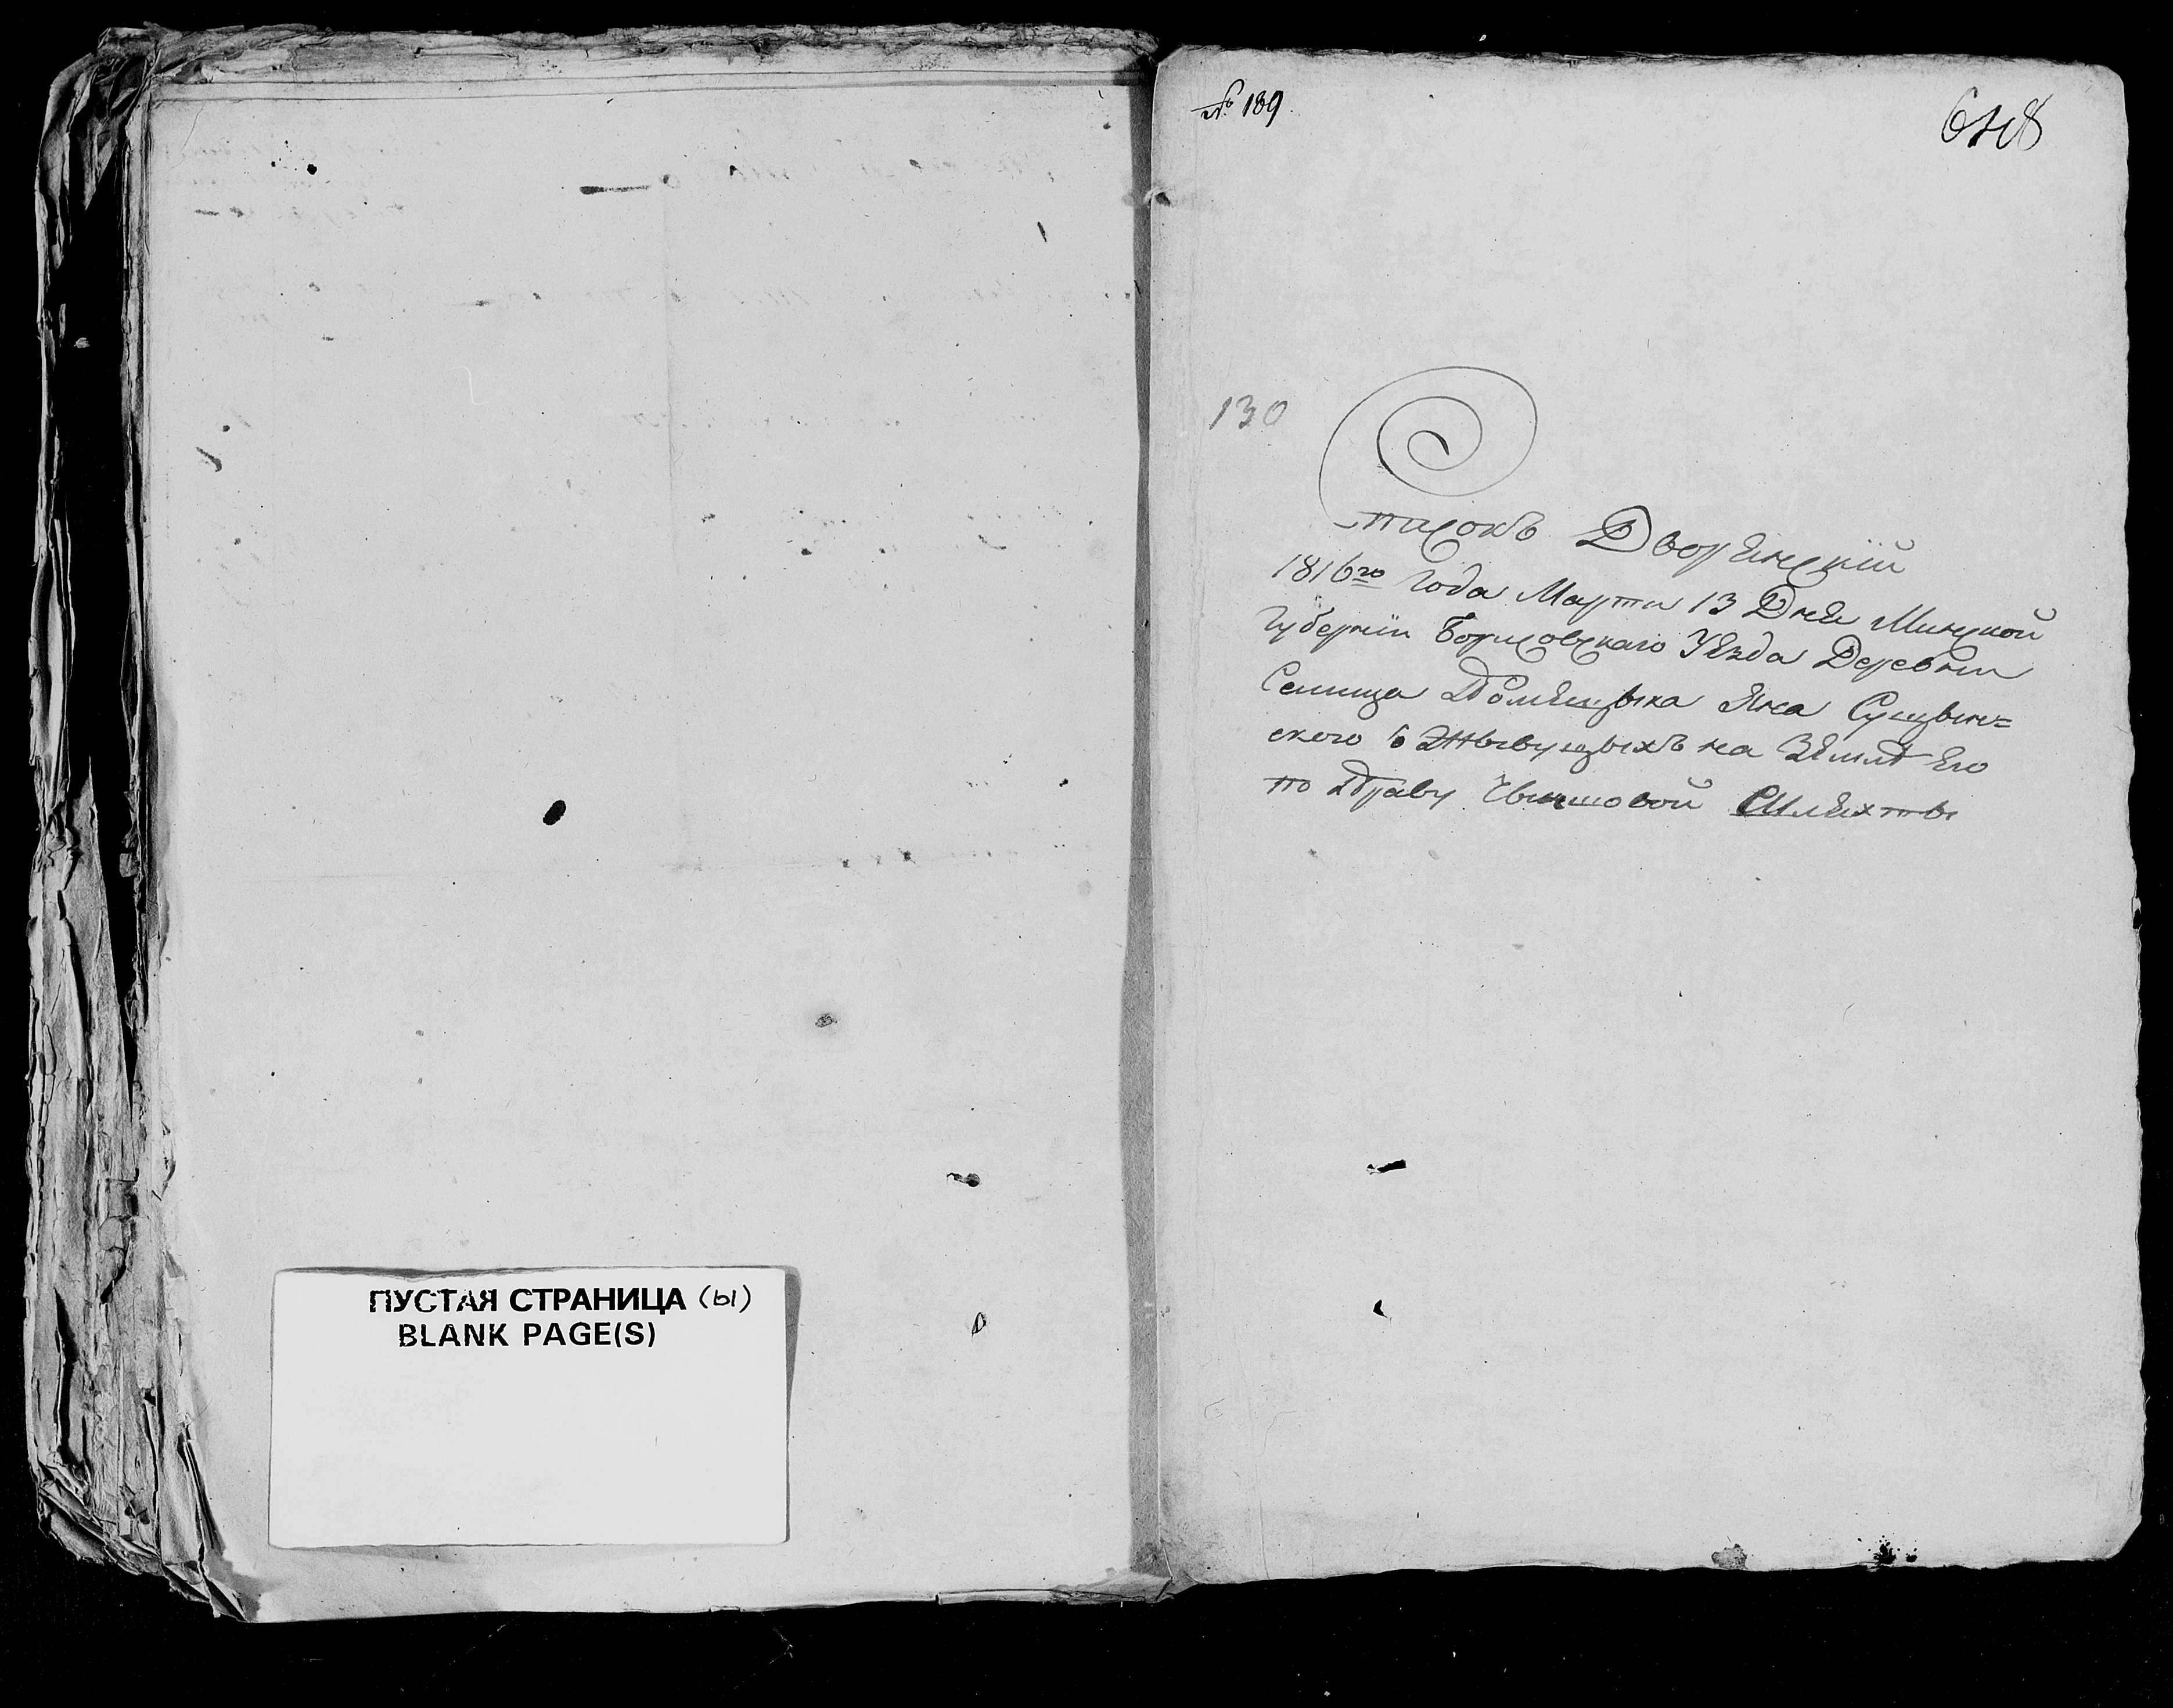 ПУСТАЯ СТРАНИЦА (ы)
BLANK PAGE(S)
№ 189
648
130
Списокъ Дворянскій
1816го Года Марта 13 Дня Минской
Губерніи Борисовскаго Уезда Деревни
Селища Помещыка Яна Сущын=
ского о Жывущыхъ на Земле Его
по Праву Чыншовой Шляхты